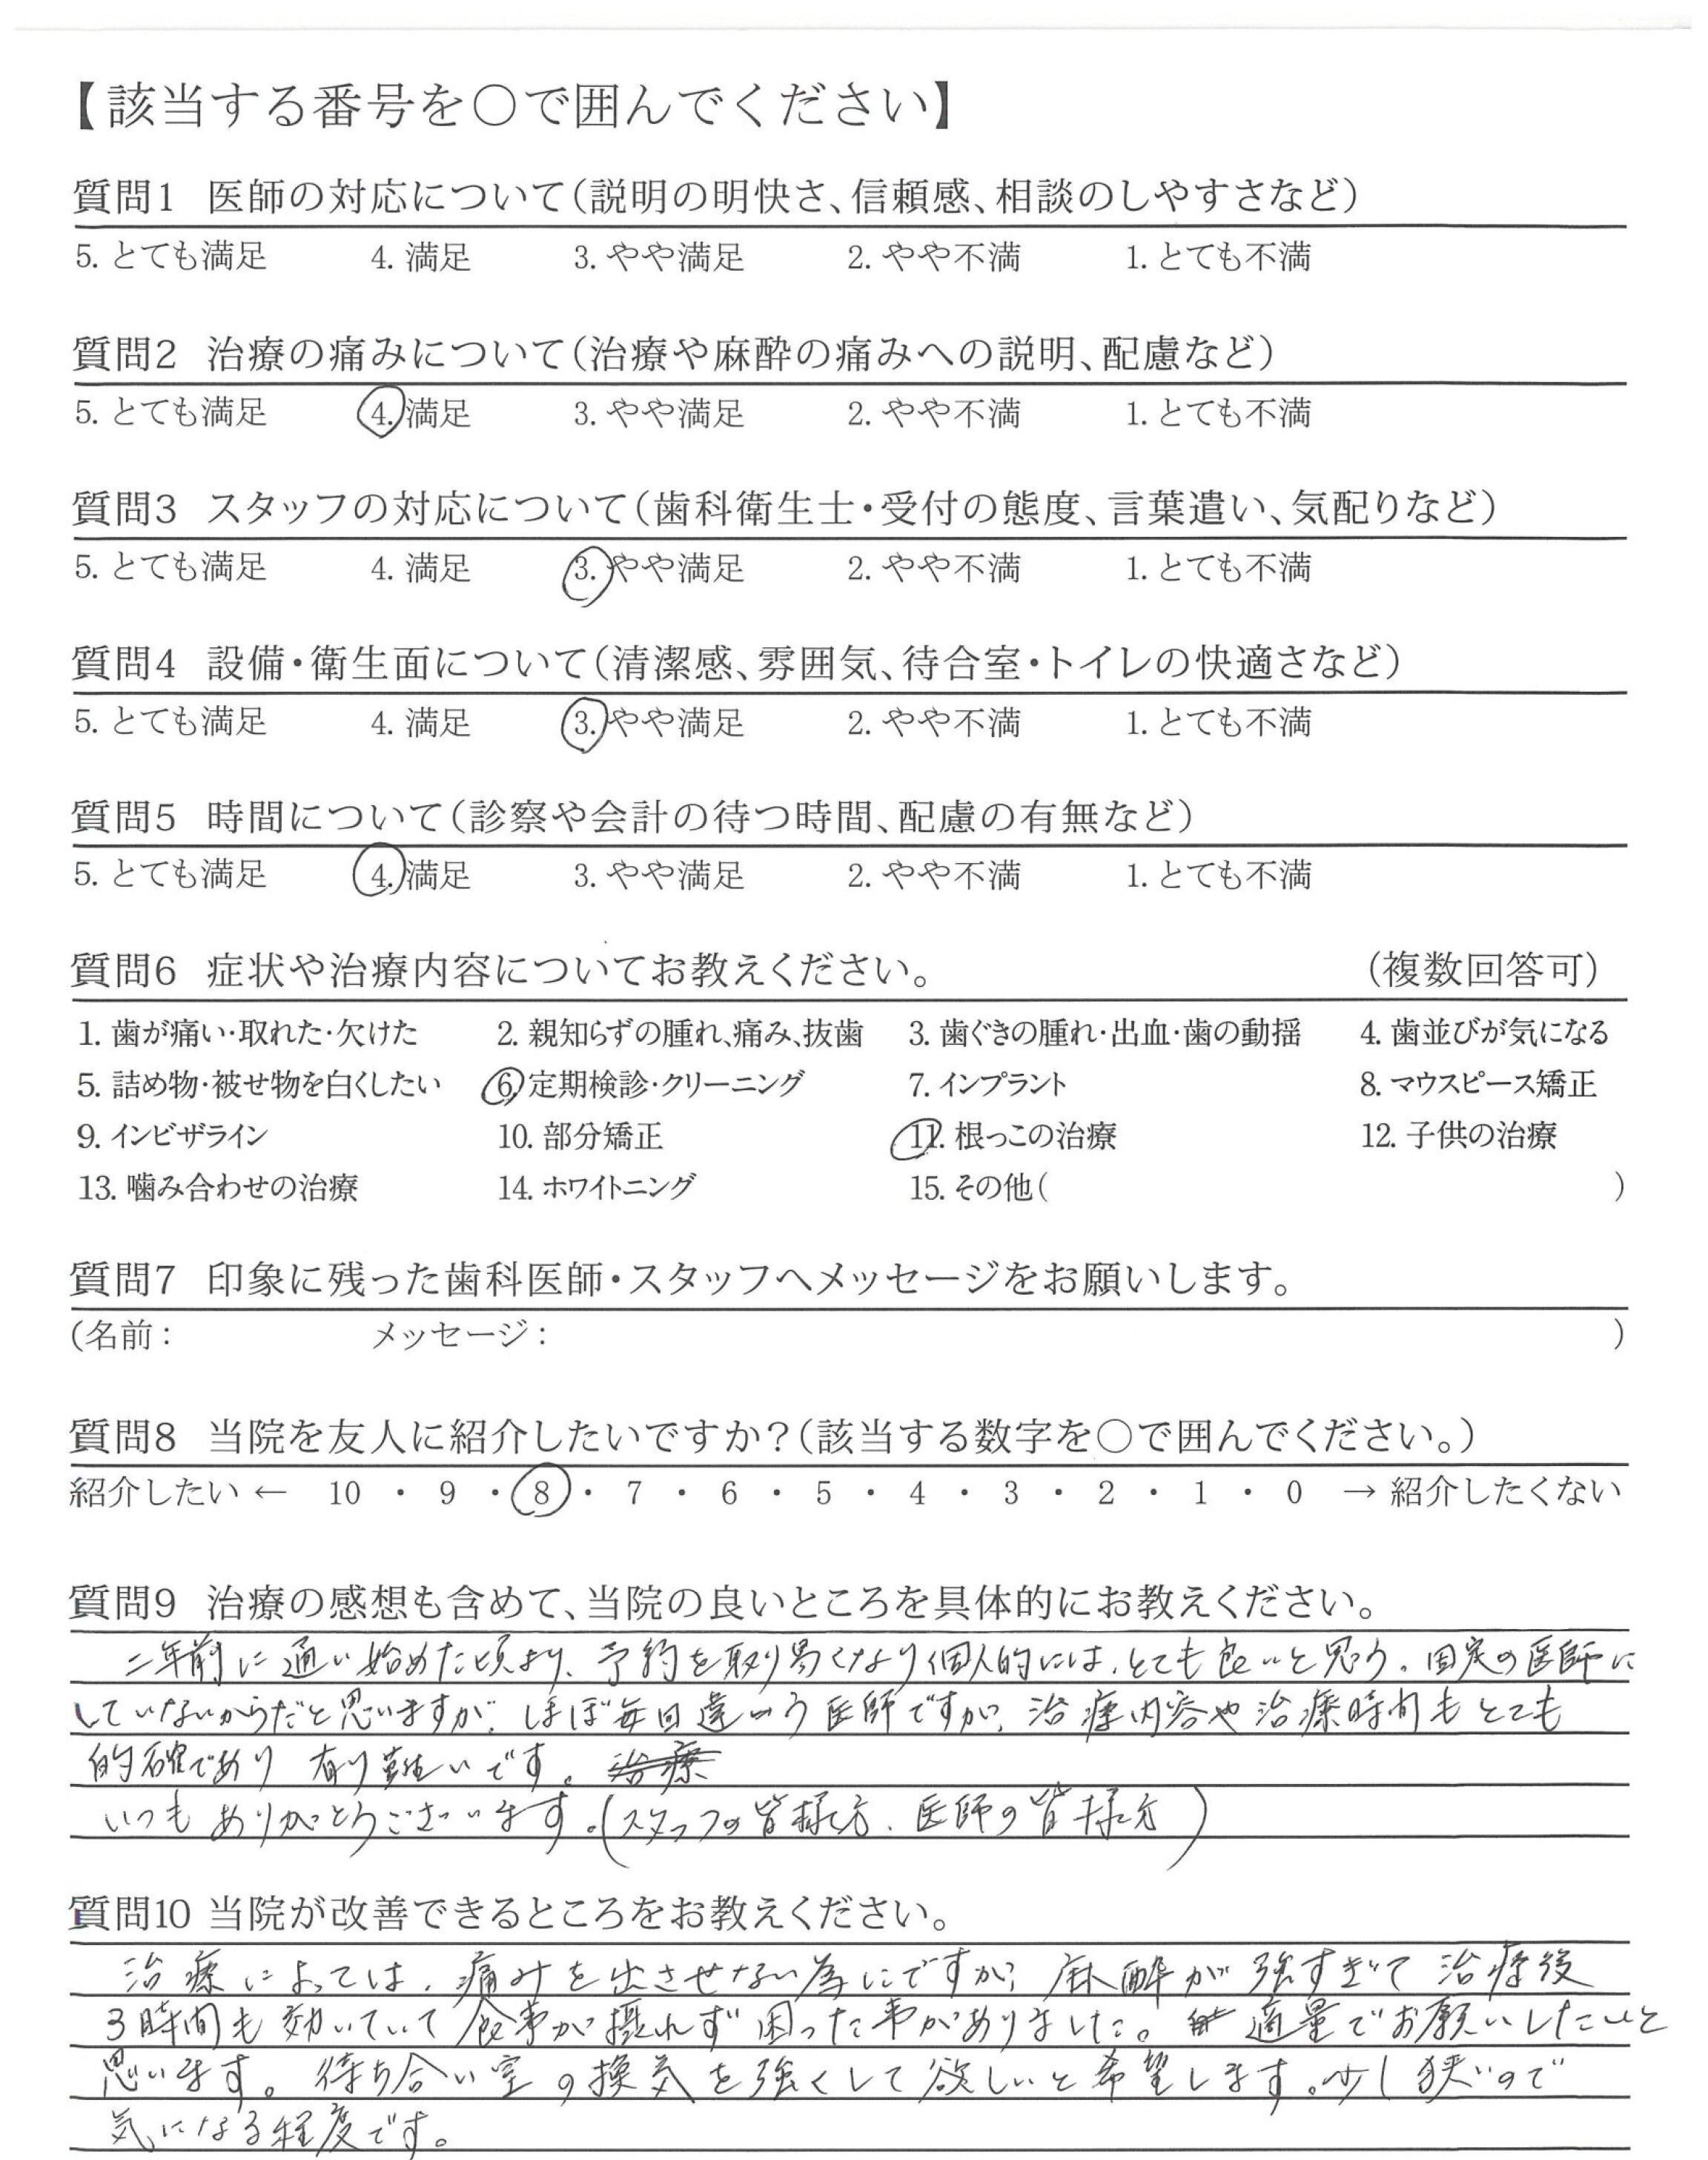 【該当する番号を○で囲んでください】
質問1 医師の対応について(説明の明快さ、信頼感、相談のしやすさなど)
5. とても満足 4. 満足 3. やや満足 2. やや不満 1. とても不満
質問2 治療の痛みについて(治療や麻酔の痛みへの説明、配慮など)
5. とても満足 4. 満足 3. やや満足 2. やや不満 1. とても不満
質問3 スタッフの対応について(歯科衛生士・受付の態度、言葉遣い、気配りなど)
5. とても満足 4. 満足 3. やや満足 2. やや不満 1. とても不満
質問4 設備・衛生面について(清潔感、雰囲気、待合室・トイレの快適さなど)
5. とても満足 4. 満足 3. やや満足 2. やや不満 1. とても不満
質問5 時間について(診察や会計の待つ時間、配慮の有無など)
5. とても満足 4. 満足 3. やや満足 2. やや不満 1. とても不満
質問6 症状や治療内容についてお教えください。 (複数回答可)
1. 歯が痛い・取れた・欠けた 2. 親知らずの腫れ、痛み、抜歯 3. 歯ぐきの腫れ・出血・歯の動揺 4. 歯並びが気になる
5. 詰め物・被せ物を白くしたい 6. 定期検診・クリーニング 7. インプラント 8. マウスピース矯正
9. インビザライン 10. 部分矯正 11. 根っこの治療 12. 子供の治療
13. 噛み合わせの治療 14. ホワイトニング 15. その他( )
質問7 印象に残った歯科医師・スタッフへメッセージをお願いします。
(名前: メッセージ: )
質問8 当院を友人に紹介したいですか?(該当する数字を○で囲んでください。)
紹介したい ← 10 ・ 9 ・ 8 ・ 7 ・ 6 ・ 5 ・ 4 ・ 3 ・ 2 ・ 1 ・ 0 → 紹介したくない
質問9 治療の感想も含めて、当院の良いところを具体的にお教えください。
二年前に通い始めた頃より、予約を取り易くなり個人的には、とても良いと思う。固定の医師に
していないからだと思いますが、ほぼ毎回違う医師ですが、治療内容や治療時間もとても
的確であり 有り難いです。治療
いつもありがとうございます。(スタッフの皆様方、医師の皆様方)
質問10 当院が改善できるところをお教えください。
治療によっては、痛みを出させない為にですか? 麻酔が強すぎて治療後
3時間も効いていて食事が摂れず困った事がありました。適量でお願いしたいと
思います。待ち合い室の換気を強くして欲しいと希望します。少し狭いので
気になる程度です。